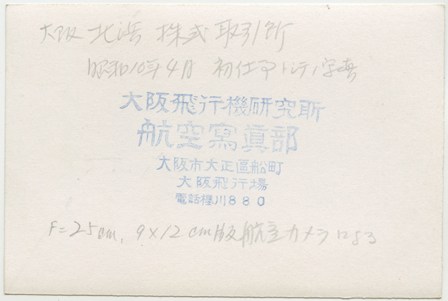 大阪 北浜 株式取引所
昭和10年4月 初仕事トシテ写真
大阪飛行機研究所
航空寫眞部
大阪市大正區船町
大阪飛行場
電話櫻川880
F=25cm, 9×12cm版航空カメラによる